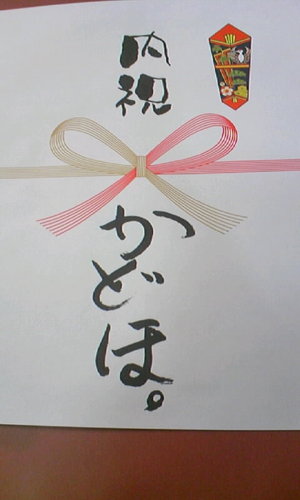 内祝
かどほ。